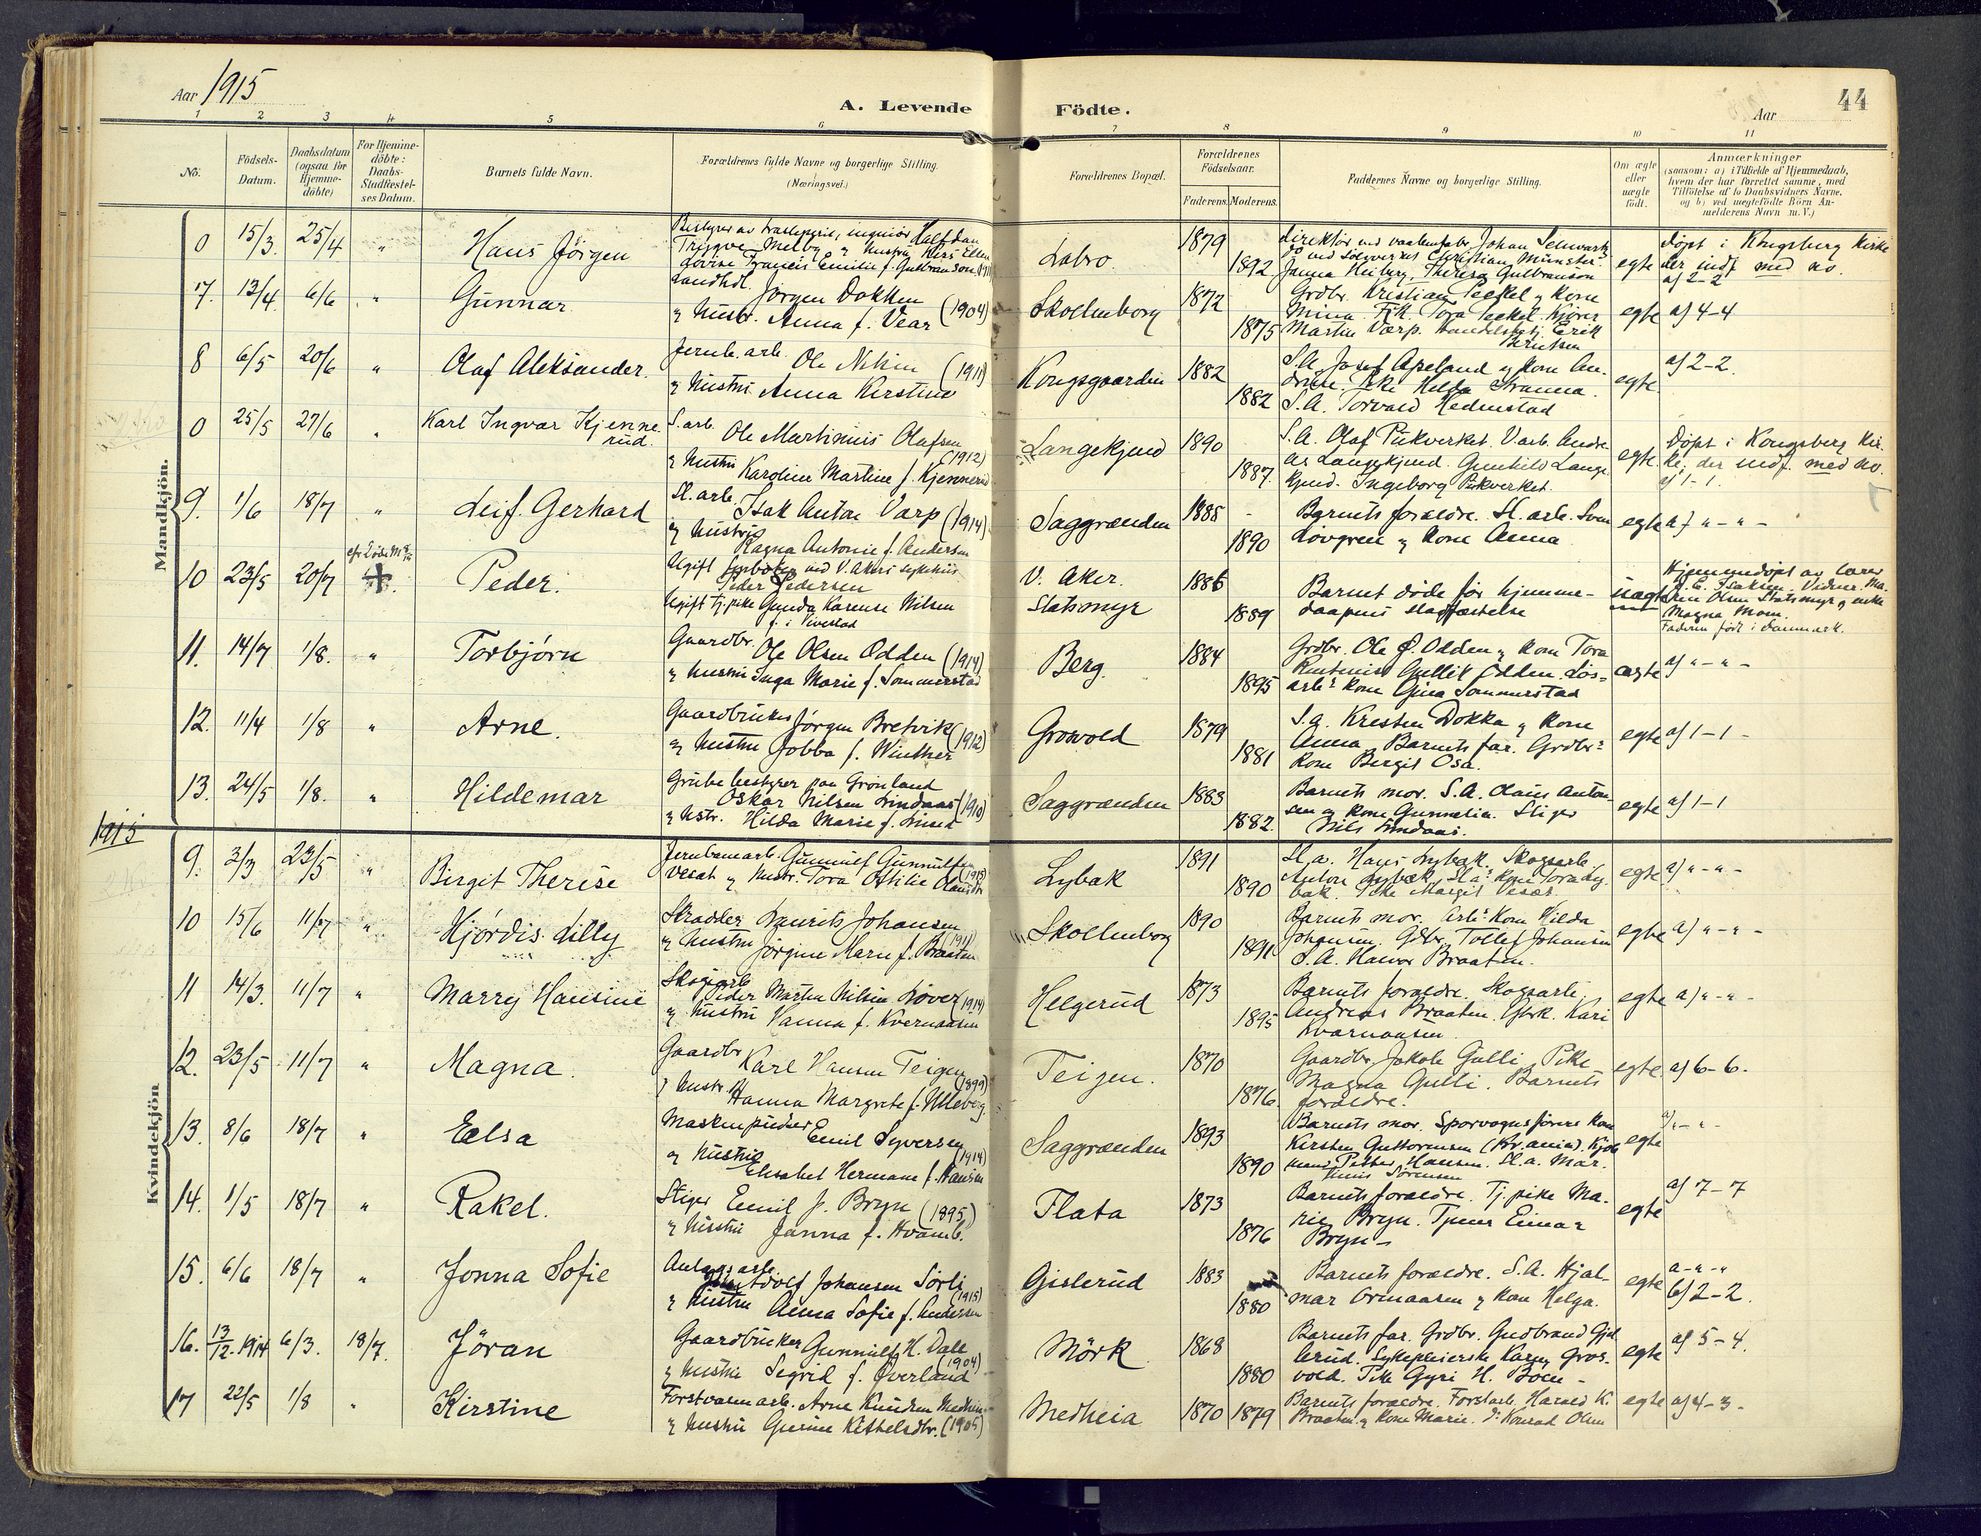 Aar 1915
A. Levende Födte.
Aar
44
1 2 3 4 5 6 7 8 9 10 11
No.
Födsels-
Datum.
Daabsdatum
(ogsaa for
Hjemme-
döbte)
For Hjemme-
döbte:
Daabs-
Stadfæstel-
ses Datum.
Barnets fulde Navn.
Forældrenes fulde Navne og borgerlige Stilling.
(Næringsvei.)
Forældrenes Bopæl.
Forældrenes
Födselsaar.
Faderens. Moderens.
Faddernes Navne og borgerlige Stilling.
Om ægte
eller
uægte
födt.
Anmærkninger
(saasom: a) i Tilfælde af Hjemmedaab,
hvem der har forrettet samme, med
Tilföielse af to Daabsvidners Navne,
og b) ved uægtefödte Börn An-
melderens Navn m. V.)
Mandkjön.
0 15/3. 25/4 " Hans Jörgen
Bestyrer av træsleperi, ingeniør Halfdan
Trygve Melby og hustru
Labro. 1879 1892
Direktør ved vaabenfabr. Johan
egte
Døpt i Kongsberg Kirke
der indf med no.
a) 2-2
7. 13/4. 6/6 " Gunnar
Landhdl.
Jørgen Dokken
og hustr. Anna f. Vear (1904)
Skollenborg 1872 1875
Grdbr. Kristian Teckel og kone
Mina. Frk. Tora Teckel. Kjører
Martin Varp. Erik
Berntsen
egte a) 4-4
8 6/5 20/6 " Olaf Aleksander.
Jernb. arb. Ole Nilsen (1911)
og hustru Anna Kirstine
Kongsgaarden 1882 1882
S.A. Torvald Hedenstad
egte. a) 2-2.
0 25/5 27/6 " Karl Ingvar Kjenne
rud.
S. arb. Ole Martinius Olafsen
(1912)
og hustru Karoline Martine f. Kjennerud
Langekjend 1890 1887.
S.A. Olaf Pukverket. V.arb. Andre
as Langekjend. Gunhild Lange
kjend. Ingeborg Pukverket.
egte.
Døpt i Kongsberg Kir
ke, der indf. med no.
a) 1-1.
9. 1/6 18/7 " Leif Gerhard
Sl. arb.
Isak Anton Varp (1914)
og hustru
Ragna Antonie f. Andersen
Saggrenden 1885 - 1890
Barnets foreldre. Sl. arb. Sven
Løvgren og kone Anna
egte a) " - " -
10 23/5 20/7 Peder.
Ugift ved V. Akers sykehus
Peder Pedersen
Ugift tj. pike Gunda Karense Nilsen
V. Aker.
Statsmyr
1886 1889
Barnet døde før hjemme-
daapens stadfæstelse
uegte
Hjemmedøpt av lærer
Isaksen. Vidner: Ma
rin Olsen Statsmyr og enke
Magna Moen.
Faderen født i Danmark.
11. 14/7 1/8. " Torbjørn
Gaardbr.
Ole Olsen Odden (1914)
og hustru Inga Marie f. Sommerstad
Berg. 1884 1895
Grdbr. Ole O. Odden og kone Tora
Gullik Odden. Løs=
arb.s kone Gina Sommerstad
egte a) " - " -
12. 11/4 1/8 " Arne.
Gaardbruker Jørgen Bretvik (1912)
og hustru Jobba f. Winther
Grosvold 1879 1881
S.a. Kresten Dokka og kone
Anna. Barnets far. Grdbr.s
kone Bergit Osa.
egte a) 1-1 -
13. 24/5 1/8. " Hildemar
Grubebestyrer paa Grønland
Oskar Nilsen Lindaas (1910)
og hstr. Hilda Marie f. Linseth
Saggrænden 1883 1882.
Barnets mor. S.A. Claus Anton
sen og kone Gunnelia. Stiger
Nils Lindaas.
egte a) 1-1
1915
Kvindekjön
9. 3/3 23/5 " Birgit Therese
Jernbanearb. Gunnulf Gunnulfsen
Vesæt og hustr. Tora Otilie Olausdtr
Lybæk 1891 1890
Sl. a. Hans Lybæk. Skogsarb.
Anton Lybæk. Sl.a.s kone Tora Ly
bæk. Pike Margit Vesæt
egte a) - " -
10 15/6 11/7 " Hjørdis Lilly
Skrædder Laurits Johansen
(1911)
og hustru Jørgine Marie f. Braaten
Skollenborg 1890 1891
Barnets mor. Arb.s kone Hilda
Johansen. Gdbr. Tollef Johansen
S.A. Halvor Braaten.
egte a) " - " -
11 14/3. 11/7 " Marry Hansine
Skogsarb.
Peder Martin Nilsen Løver (1914)
og hustru Hanna f. Kvernaasen
Helgerud 1873 1895
Barnets foreldre. Skogsarb.
Andreas Braaten. Kari
Kvarnaasen.
egte a) " - " -
12. 23/5. 11/7 " Magna.
Gaardbr.
Karl Hansen Teigen
(1899)
og hustr. Hanna Margrete f. Ulleberg.
Teigen. 1870 1876.
Gaardbr. Jakob Gulli. Pike
Magna Gulli. Barnets
foreldre.
egte. a) 6-6.
13. 8/6 18/7 " Elsa
Maskinpudser Emil Syversen
(1914)
og hustru
Elisabet Hermane f. Hansen
Saggrænden 1893 1890
Barnets mor. Sporvognsførers kone
Kirsten Guttormsen (Kr.ania). Kjøb
mand Petter Hansen. Sl.a. Mar.
tinius Sørensen
egte a) " - " -
14. 1/5 18/7 " Rakel.
Stiger Emil J. Bryn (1895)
og hustru Janna f. Hvamb.
Flata 1873 1876
Barnets foreldre. Tj.pike Ma-
rie Bryn. Tjener Einar
Bryn -
egte a) 7-7
15. 6/6 18/7 " Jonna Sofie
Anlægsarb.
Adolf Johansen Sørli
(1915)
og hustru Anna Sofie f. Andersen
Gislerud 1883 1880
Barnets foreldre. S.A. Hjal-
mar Ormaasen og kone Helga.
egte a - " - "
b) 2-2.
16. 13/12-1914 6/3. 18/7. Jöran
Gaardbruker Gunnulf H. Dale
(1904)
og hustru Segrid f. Øverland
Mörk 1868 1880
Barnets far. Grdbr. Gudbrand Gisl
erud. Sykepleierske Karen Gros-
vold. Pike Gyri H. Boen -
egte a) 5-4.
17 22/5 1/8 " Kirstine
Forstvæsenarb. Arne Knudsen Medhei
og hustru Gunine Kittelsdtr. (1905)
Medheia 1870 1879
Barnets foreldre. Forstarb. Harald K.
Braaten og kone Marie. Do Konrad Olsen
egte a) 4-3-